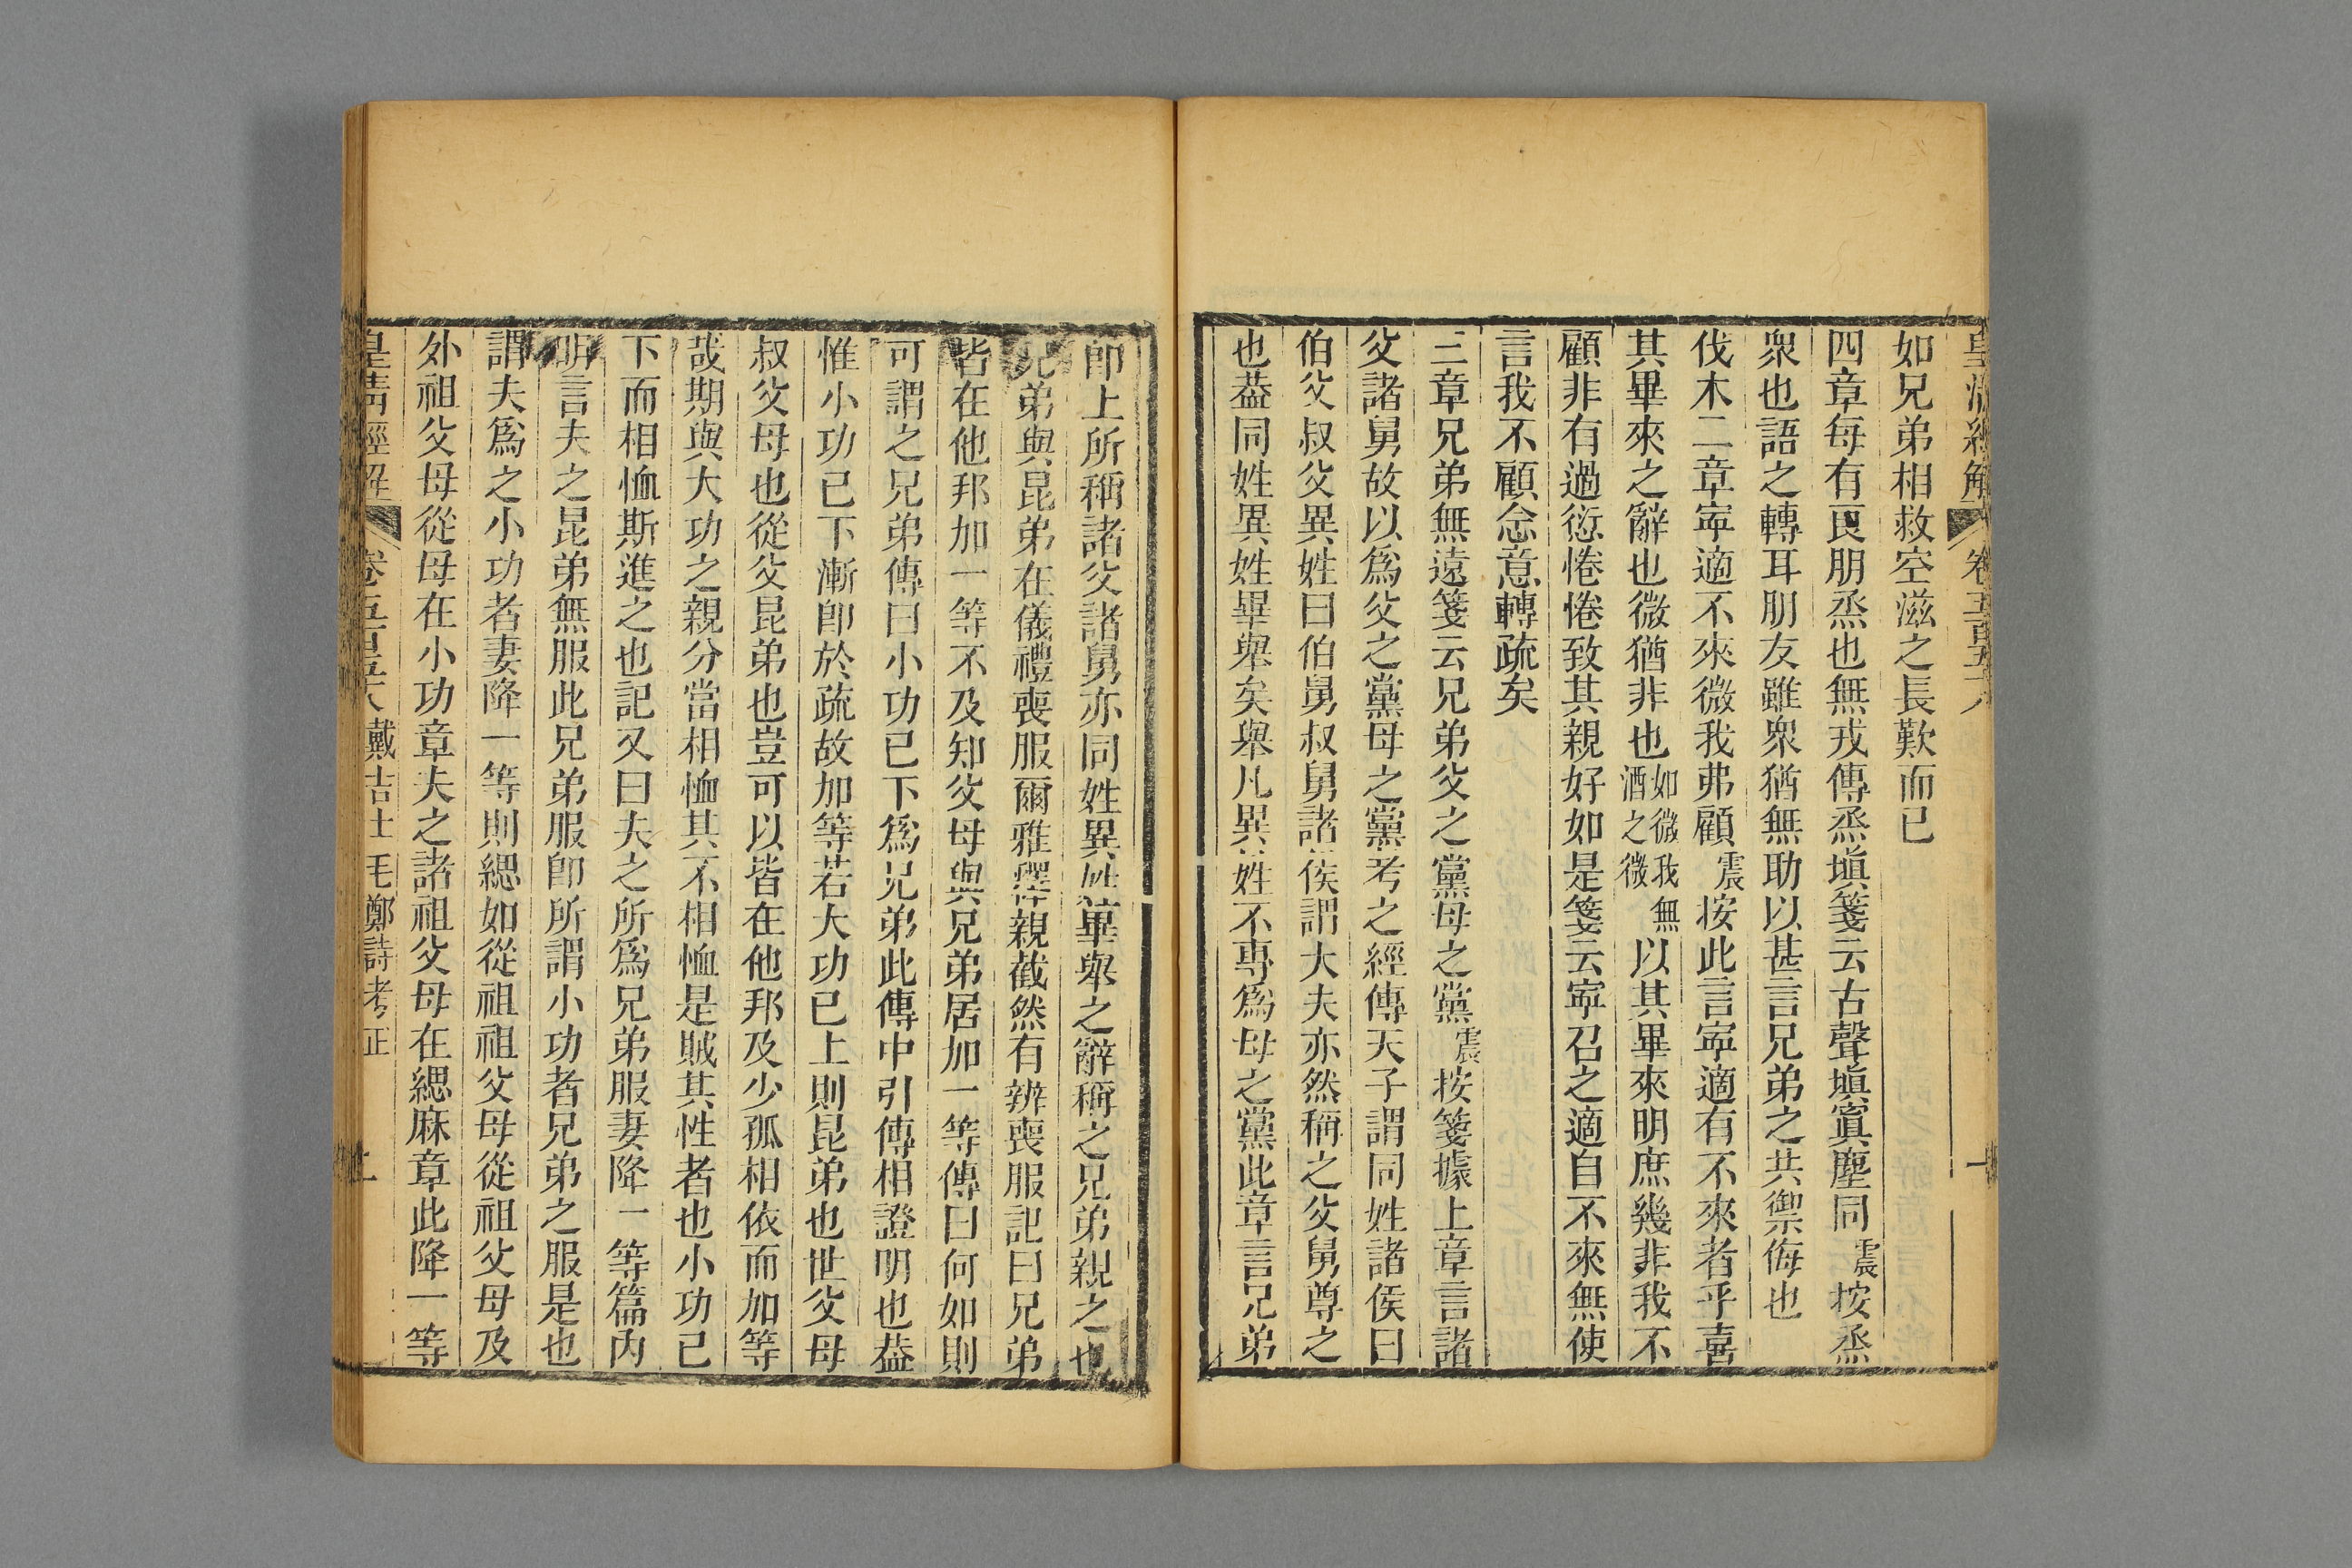 皇清經解
卷五百五十八
如兄弟相救空滋之長歎而已
四章每有良朋烝也無戎傳烝塡箋云古聲塡窴塵同震按烝
衆也語之轉耳朋友雖衆猶無助以甚言兄弟之共禦侮也
伐木二章寧適不來微我弗顧震按此言寧適有不來者乎喜
其畢來之辭也微猶非也如微我無酒之微以其畢來明庶幾非我不
顧非有過愆惓惓致其親好如是箋云寧召之適自不來無使
言我不顧念意轉疏矣
三章兄弟無遠箋云兄弟父之黨母之黨震按箋據上章言諸
父諸舅故以爲父之黨母之黨考之經傳天子謂同姓諸侯曰
伯父叔父異姓曰伯舅叔舅諸侯謂大夫亦然稱之父舅尊之
也葢同姓異姓畢舉矣舉凡異姓不專爲母之黨此章言兄弟
卽上所稱諸父諸舅亦同姓異姓畢舉之辭稱之兄弟親之也
兄弟與昆弟在儀禮喪服爾雅釋親截然有辨喪服記曰兄弟
皆在他邦加一等不及知父母與兄弟居加一等傳曰何如則
可謂之兄弟傳曰小功已下爲兄弟此傳中引傳相證明也葢
惟小功已下漸卽於疏故加等若大功已上則昆弟也世父母
叔父母也從父昆弟也豈可以皆在他邦及少孤相依而加等
哉期與大功之親分當相恤其不相恤是賊其性者也小功已
下而相恤斯進之也記又曰夫之所爲兄弟服妻降一等篇內
明言夫之昆弟無服此兄弟服卽所謂小功者兄弟之服是也
謂夫爲之小功者妻降一等則緦如從祖祖父母從祖父母及
外祖父母從母在小功章夫之諸祖父母在緦麻章此降一等
皇淸經解
卷五百五十八
戴吉士毛鄭詩考正